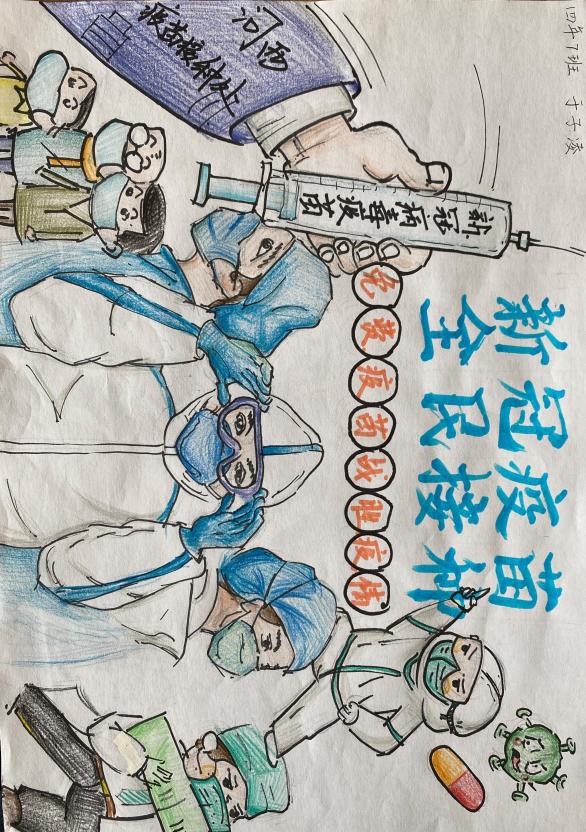 四年7班
新冠疫苗
全民接种
免费疫苗战胜疫情
新冠病毒疫苗
河西
疫苗接种处